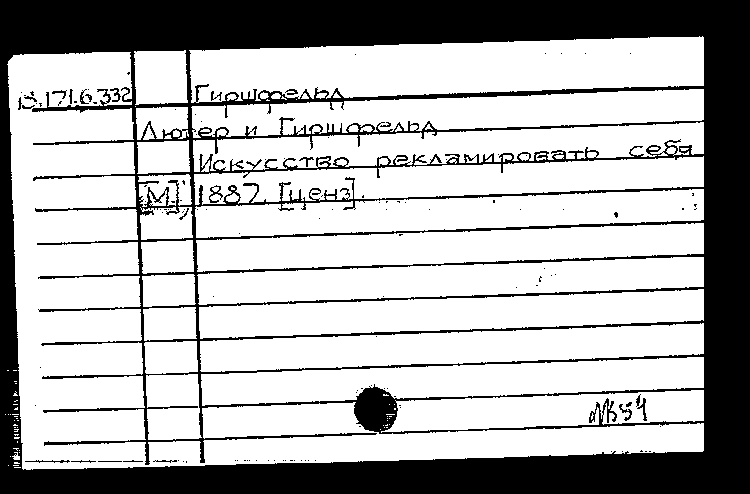 18.171.6.332 Гиршфельд
Лютер и Гиршфельд
Искусство рекламировать себя
[М], 1887. [ценз].